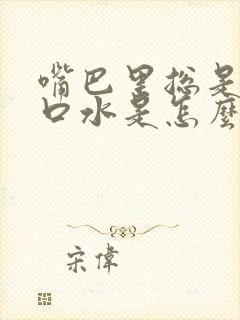 嘴巴里总是
口水是怎麼
宋偉